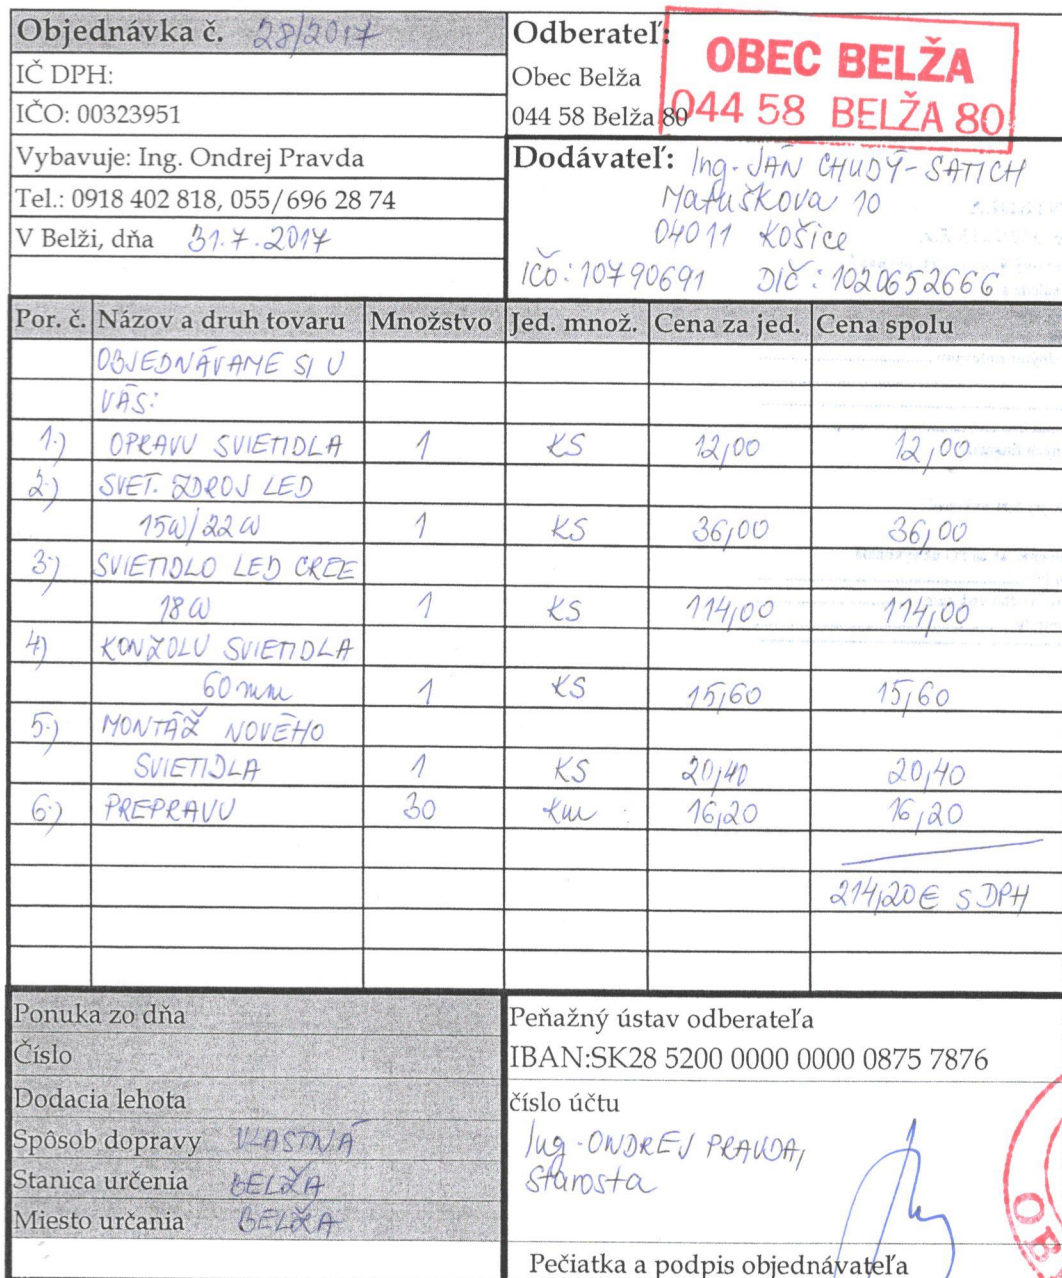 Objednávka č. 28/2017
IČ DPH:
IČO: 00323951
Vybavuje: Ing. Ondrej Pravda
Tel.: 0918 402 818, 055/696 28 74
V Belži, dňa 31.7.2017
Odberateľ:
Obec Belža
044 58 Belža 80
OBEC BELŽA
044 58 BELŽA 80
Dodávateľ: Ing. JÁN CHUDÝ-SATICH
Matuškova 10
04011 Košice
IČO: 10790691 DIČ: 1020652666
Por. č. Názov a druh tovaru Množstvo Jed. množ. Cena za jed. Cena spolu
OBJEDNÁVAME SI U
VÁS:
1.) OPRAVU SVIETIDLA 1 KS 12,00 12,00
2.) SVET. ZDROJ LED
15W/22W 1 KS 36,00 36,00
3.) SVIETIDLO LED CREE
18W 1 KS 114,00 114,00
4) KONZOLU SVIETIDLA
60mm 1 KS 15,60 15,60
5.) MONTÁŽ NOVÉHO
SVIETIDLA 1 KS 20,40 20,40
6.) PREPRAVU 30 km 16,20 16,20
214,20€ S DPH
Ponuka zo dňa
Číslo
Dodacia lehota
Spôsob dopravy VLASTNÁ
Stanica určenia BELŽA
Miesto určania BELŽA
Peňažný ústav odberateľa
IBAN:SK28 5200 0000 0000 0875 7876
číslo účtu
Ing. ONDREJ PRAVDA,
starosta
Pečiatka a podpis objednávateľa